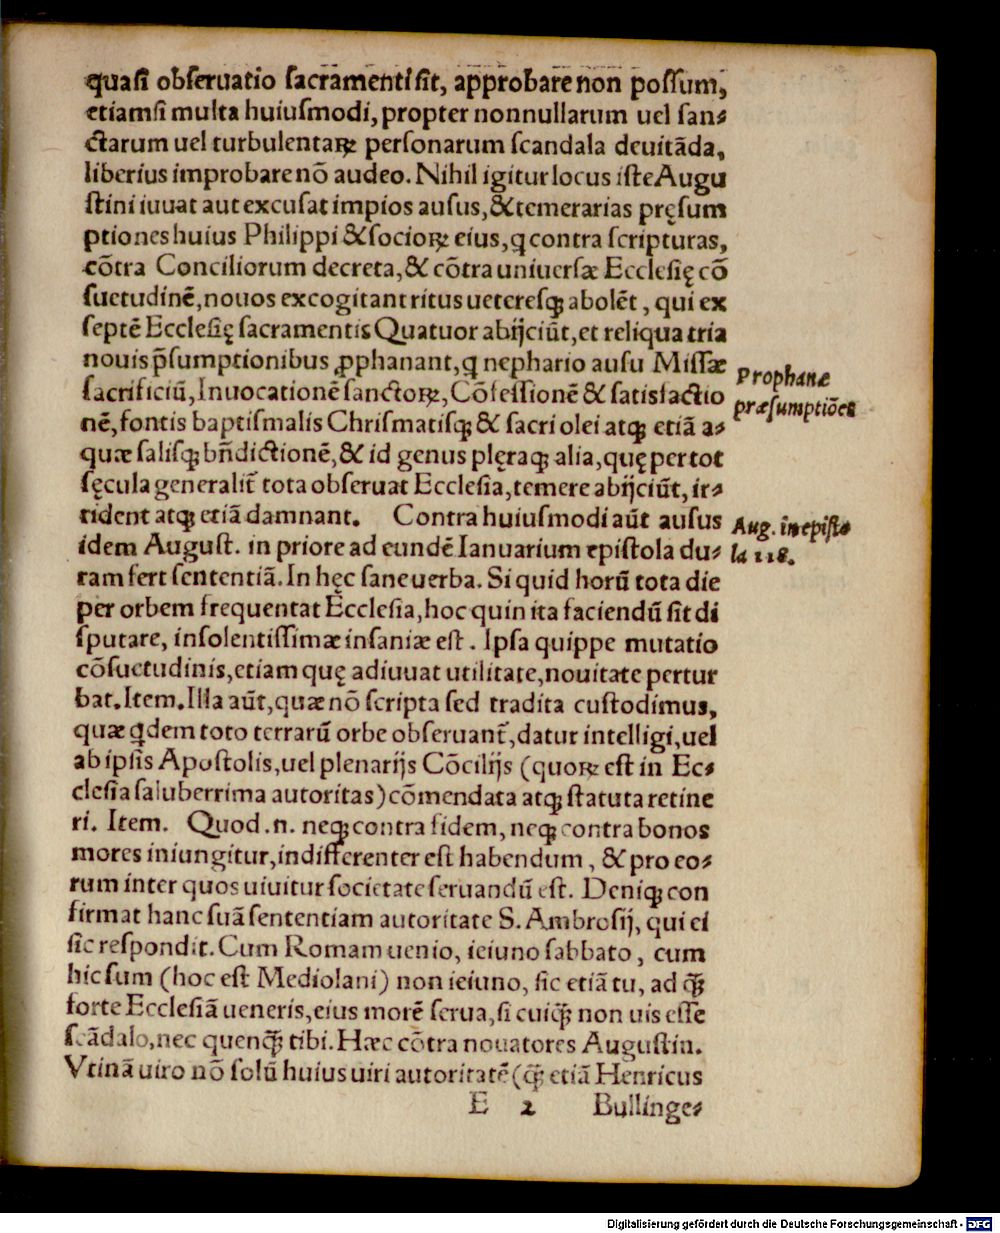 quasi obseruatio sacramenti sit, approbare non possum,
etiamsi multa huiusmodi, propter nonnullarum uel san⸗
ctarum uel turbulentaꝝ personarum scandala deuitāda,
liberius improbare nō audeo. Nihil igitur locus iste Augu
stini iuuat aut excusat impios ausus, & temerarias pręsum
ptiones huius Philippi & socioꝝ eius, ꝗ contra scripturas,
cōtra Conciliorum decreta, & cōtra uniuersæ Ecclesię cō
suetudinē, nouos excogitant ritus ueteresqꝫ abolēt, qui ex
septē Ecclesię sacramentis Quatuor abijciūt, et reliqua tria
nouis p̄sumptionibus ꝓphanant, ꝗ nephario ausu Missæ
sacrificiū, Inuocationē sanctoꝝ, Cōfessionē & satisfactio
nē, fontis baptismalis Chrismatisqꝫ & sacri olei atqꝫ etiā a⸗
quæ salisqꝫ bn̄dictionē, & id genus plęraqꝫ alia, quę per tot
sęcula generalit̄ tota obseruat Ecclesia, temere abijciūt, ir⸗
rident atqꝫ etiā damnant. Contra huiusmodi aūt ausus
idem August. in priore ad eundē Ianuarium epistola du⸗
ram fert sententiā. In hęc sane uerba. Si quid horū tota die
per orbem frequentat Ecclesia, hoc quin ita faciendū sit di
sputare, insolentissimæ insaniæ est. Ipsa quippe mutatio
cōsuetudinis, etiam quę adiuuat utilitate, nouitate pertur
bat. Item. Illa aūt, quæ nō scripta sed tradita custodimus,
quæ ꝗdem toto terrarū orbe obseruant̄, datur intelligi, uel
ab ipsis Apostolis, uel plenarijs Cōcilijs (quoꝝ est in Ec⸗
clesia saluberrima autoritas) cōmendata atqꝫ statuta retine
ri. Item. Quod .n. neqꝫ contra fidem, neqꝫ contra bonos
mores iniungitur, indifferenter est habendum, & pro eo⸗
rum inter quos uiuitur societate seruandū est. Deniqꝫ con
firmat hanc suā sententiam autoritate S. Ambrosij, qui ei
sic respondit. Cum Romam uenio, ieiuno sabbato, cum
hic sum (hoc est Mediolani) non ieiuno, sic etiā tu, ad qꝫ̄
forte Ecclesiā ueneris, eius morē serua, si cuiqꝫ̄ non uis esse
scādalo, nec quenqꝫ̄ tibi. Hæc cōtra nouatores Augustin.
Vtinā uiro nō solū huius uiri autoritatē (qꝫ̄ etiā Henricus
E 2 Bullinge⸗
Prophanæ
præsumptiōes
Aug. in episto
la 118.
Digitalisierung gefördert durch die Deutsche Forschungsgemeinschaft - DFG